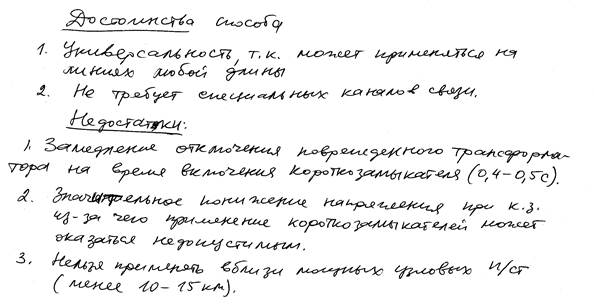 Достоинства способа
1. Универсальность, т.к. может применяться на
линиях любой длины
2. Не требует специальных каналов связи.
Недостатки:
1. Замедление отключения поврежденного трансформа-
тора на время включения короткозамыкателя (0,4-0,5с).
2. Значительное понижение напряжения при к.з.
из-за чего применение короткозамыкателей может
оказаться недопустимым.
3. Нельзя применять вблизи мощных узловых п/ст
(менее 10-15км).